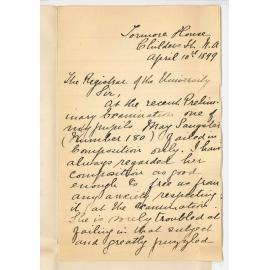 Tormore House
Childers St. N.A
April 10th 1899
The Registrar of the University
Sir,
At the recent Prelimi-
nary Examination one of
my pupils May Sangster
(Number 188) failed in
Composition only. I have
always regarded her
composition as good
enough to free us from
any anxiety respecting
it at the examination.
She is sorely troubled at
failing in that subject
and greatly puzzled